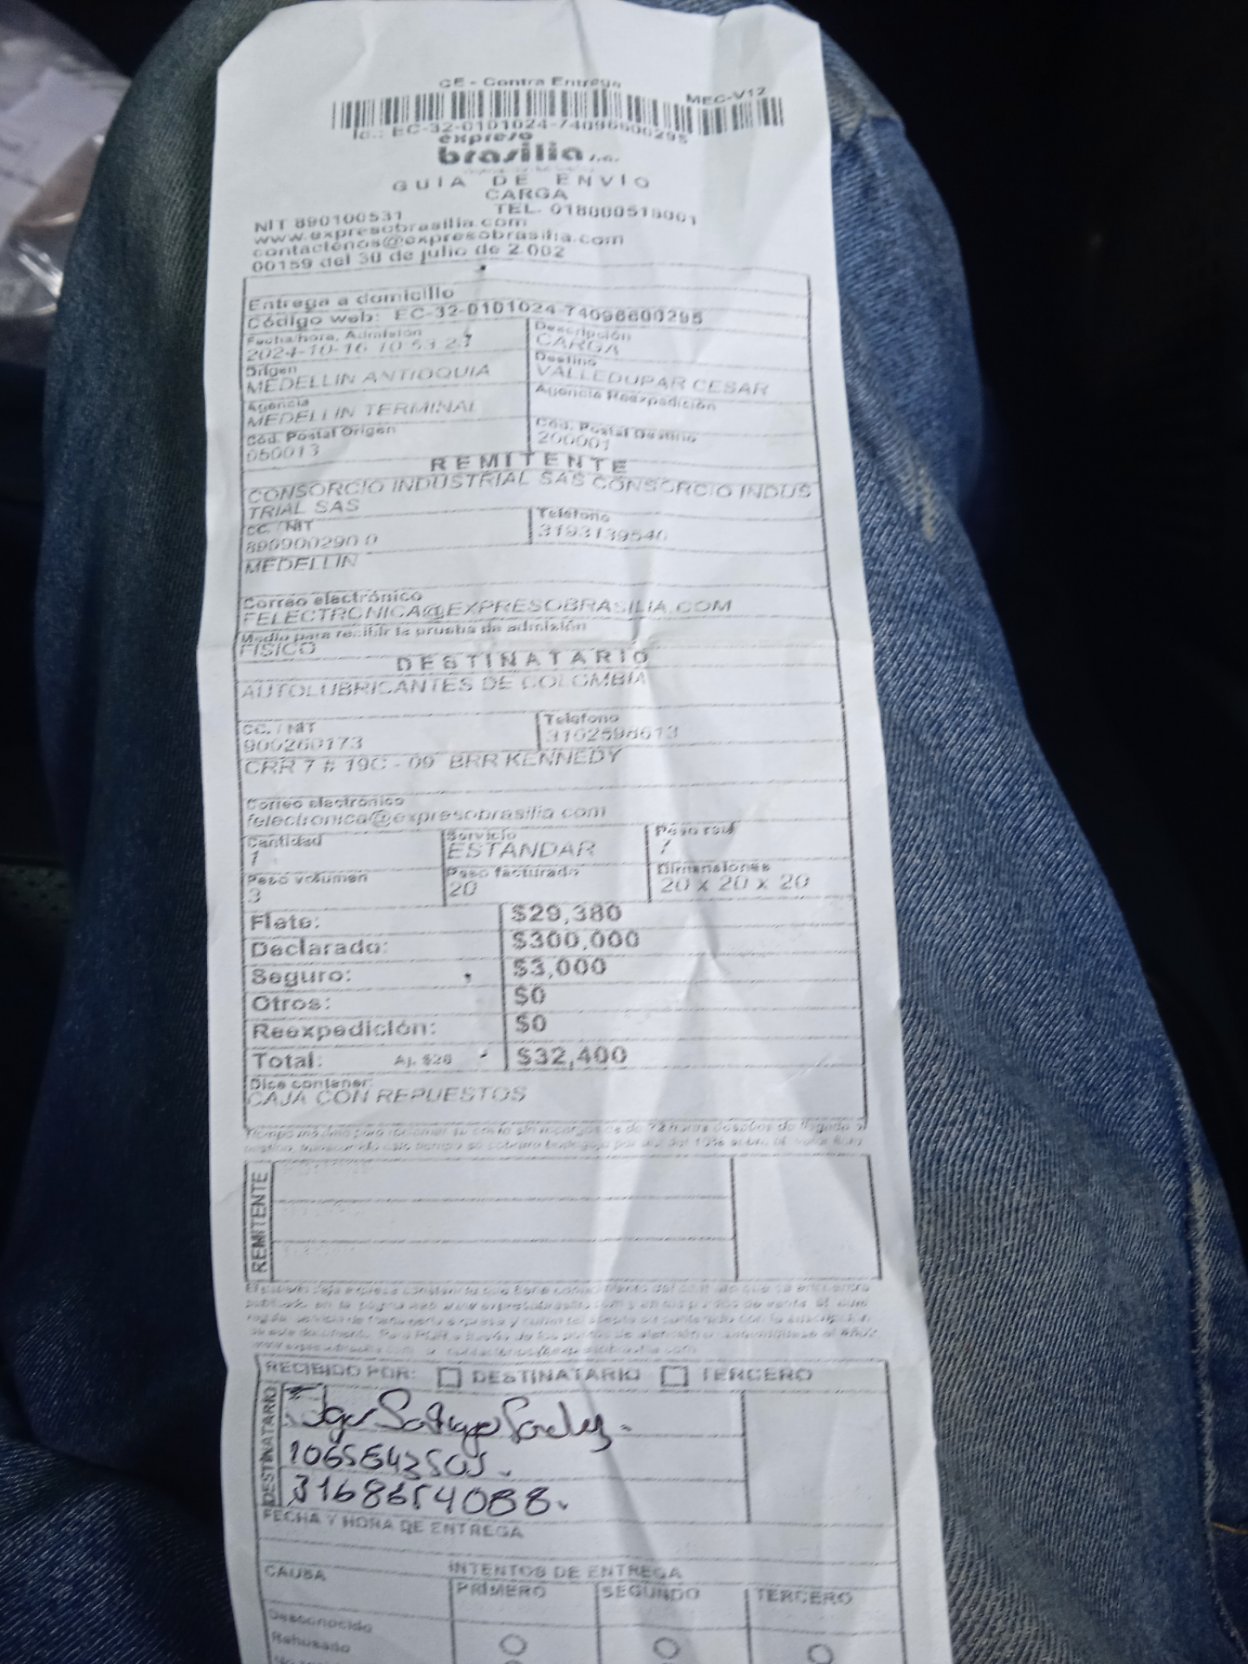 CE - Contra Entrega
MEC-V12
EC-32-0101024-74096600295
expreso
brasilia s.a.
GUIA DE ENVIO
CARGA
NIT 890100531 TEL. 018000518001
www.expresobrasilia.com
contactenos@expresobrasilia.com
00159 del 30 de julio de 2.002
Entrega a domicilio
Código web: EC-32-0101024-74096600295
Fecha/hora, Admisión Descripción
2024-10-16 10 53 23 CARGA
Origen Destino
MEDELLIN ANTIOQUIA VALLEDUPAR CESAR
Agencia Agencia Reexpedición
MEDELLIN TERMINAL
Cód. Postal Origen Cód. Postal Destino
050013 200001
REMITENTE
CONSORCIO INDUSTRIAL SAS CONSORCIO INDUS
TRIAL SAS
CC. / NIT Teléfono
890900290 0 3193139540
MEDELLIN
Correo electrónico
FELECTRONICA@EXPRESOBRASILIA.COM
Medio para recibir la prueba de admisión
FISICO
DESTINATARIO
AUTOLUBRICANTES DE COLOMBIA
CC. / NIT Teléfono
900260173 3102598613
CRR 7 # 19C - 09 BRR KENNEDY
Correo electrónico
felectronica@expresobrasilia.com
Cantidad Servicio Peso real
1 ESTANDAR 7
Peso volumen Peso facturado Dimensiones
3 20 20 x 20 x 20
Flete: $29,380
Declarado: $300,000
Seguro: $3,000
Otros: $0
Reexpedición: $0
Total: Aj. $20 $32,400
Dice contener:
CAJA CON REPUESTOS
REMITENTE
RECIBIDO POR: DESTINATARIO TERCERO
DESTINATARIO
3168654088
FECHA Y HORA DE ENTREGA
CAUSA INTENTOS DE ENTREGA
PRIMERO SEGUNDO TERCERO
Desconocido
Rehusado